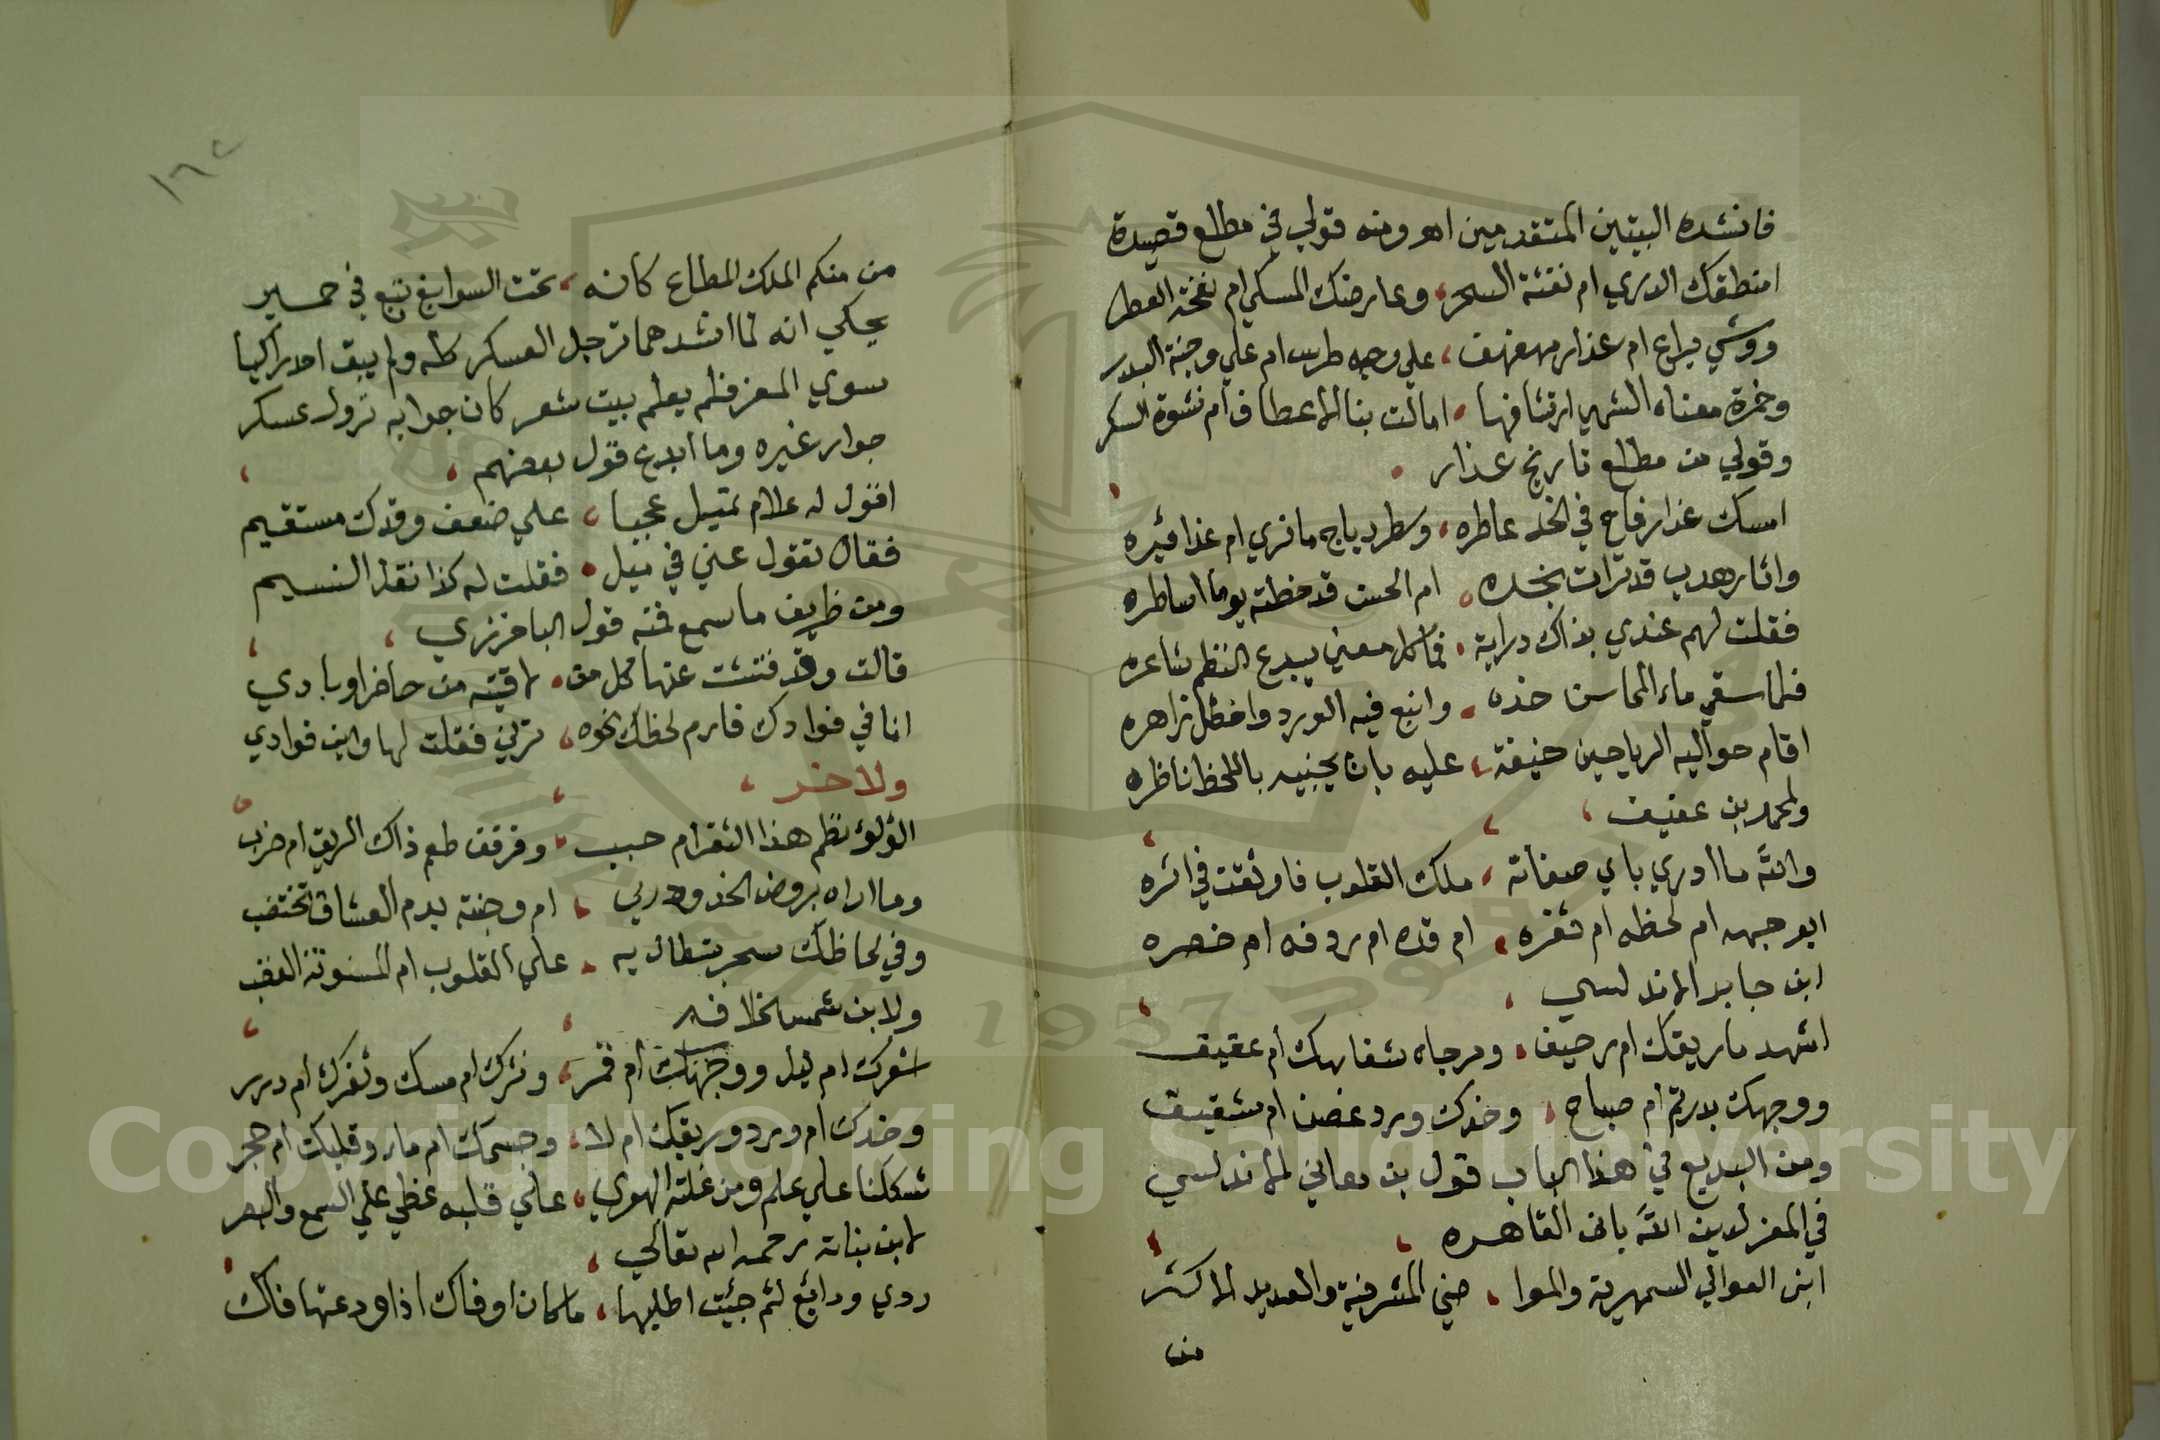 فانشده البيتين المتقدمين اهـ ومنه قولي في مطلع قصيدة
امنطقك الدري ام نفثة السحر، وعارضك المسكي ام نفحة العطر
ووشي يراع ام عذار مهفهف، علي وجه طرس ام علي وجنة البدر
وخمرة معناه الشهي ارتشافها، امالت بنا الاعطاف ام نشوة السكر
وقولي من مطلع تاريخ عذار
امسك عذار فاح في الخد عاطره، وسطر ديباج ما نري ام غدائيره
واثار هدب قد ترات بخده، ام الحسن قد خطته يوما اساطره
فقلت لهم عندي بذاك دراية، فما كل معني يبدع النظم شاعره
فلما سقي ماء المحاسن خده، واينع فيه الورد واخضل زاهره
اقام حواليه الرياحين خيفة، عليه بان يجنيه باللحظ ناظره
ولمحمد بن عفيف
والله ما ادري باي صفاته، ملك القلوب فاوثقت في اسره
ابوجهه ام لحظه ام ثغره، ام قده ام ردفه ام خصره
ابن جابر الاندلسي
اشهد ما ريقك ام رحيق، ومرجاه شفاهك ام عقيق
ووجهك بدر تم ام صباح، وخدك ورد غصن ام شقيق
ومن البديع في هذا الباب قول بن هاني الاندلسي
في المعز لدين الله باني القاهره
ابني العوالي السمهرية والموا، ضي المشرفية والعديد الاكثر
من
١٦٢
من منكم الملك المطاع كانه، تحت السوابغ تبع في حمير
يحكي انه لما انشدهما ترجل العسكر كله ولم يبق احد راكبا
سوي المعز فلم يعلم بيت شعر كان جوابه نزول عسكر
جرار غيره وما ابدع قول بعضهم
اقول له علام تميل عجبا، علي ضعف وقدك مستقيم
فقال تقول عني في ميل، فقلت له كذا نقل النسيم
ومن ظريف ما سمع فته قول الباخرزي
قالت وقد فتشت عنها كل من، لاقيته من حاضر او بادي
انا في فوادك فارم لحظك نحوه، ترني فقلت لها واين فوادي
ولاخر
الؤلؤ نظم هذا الثغر ام حبب، وقرقف طعم ذاك الريق ام ضرب
وما اراه بروض الخد ورد ربي، ام وجنة بدم العشاق تختضب
وفي لحاظك سحر يتطال به، علي القلوب ام المسنونة القضب
ولابن شمس خلافه
اشعرك ام ليل ووجهك ام قمر، ونشرك ام مسك وثغرك ام درر
وخدك ام ورد وريقك ام لا، وجسمك ام ماء وقلبك ام حجر
شككنا علي علم ومن غلته الهوي، علي قلبه غطي علي السمع والبصر
لابن نباته رحمه الله تعالي
ردي ودائع لثم جئت اطلبها، ما كان اوفاك اذا ودعتها فاك
Copyright © King Saud University
1957